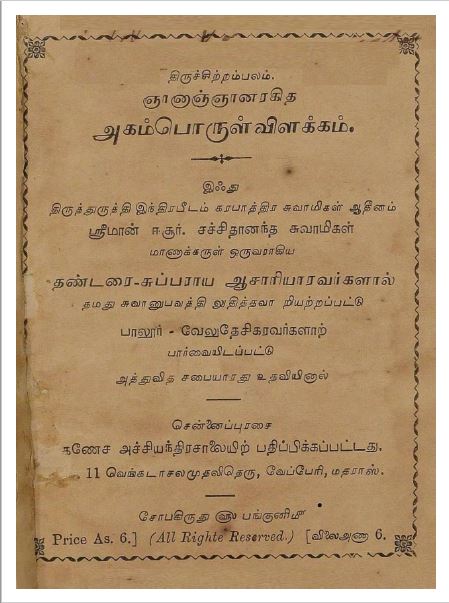 திருச்சிற்றம்பலம்.
ஞானாஞ்ஞானரகித
அகம்பொருள்விளக்கம்.
இஃது
திருத்துருத்தி இந்திரபீடம் கரபாத்திர சுவாமிகள் ஆதீனம்
ஸ்ரீமான் ஈசூர். சச்சிதானந்த சுவாமிகள்
மாணாக்கருள் ஒருவராகிய
தண்டரை-சுப்பராய ஆசாரியாரவர்களால்
தமது சுவானுபவத்தி லுதித்தவா றியற்றப்பட்டு
பாலூர் - வேலுதேசிகரவர்களாற்
பார்வையிடப்பட்டு
அத்துவித சபையாரது உதவியினால்
சென்னைப்புரசை
கணேச அச்சியந்திரசாலையிற் பதிப்பிக்கப்பட்டது.
11 வெங்கடாசலமுதலிதெரு, வேப்பேரி, மதராஸ்.
சோபகிருது ௵ பங்குனி௴
Price As. 6.] (All Rights Reserved.) [விலைஅணா 6.